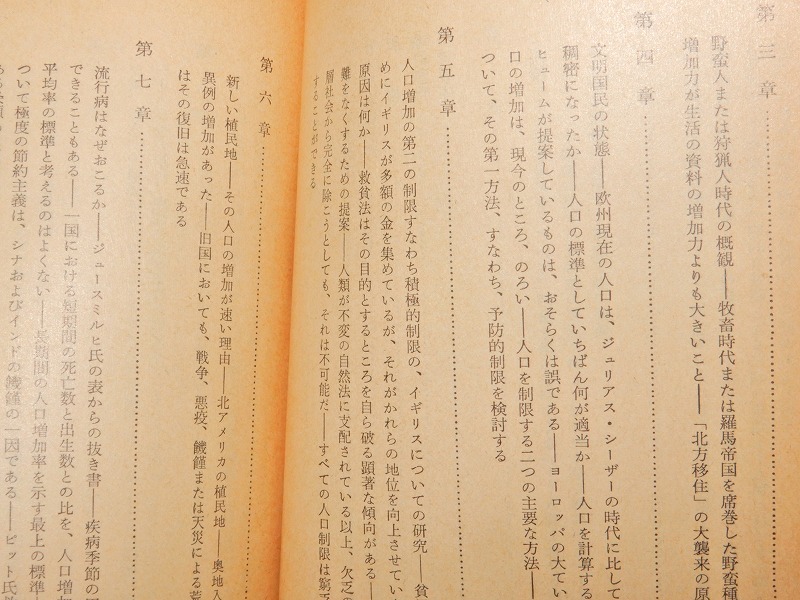 第三章
野蛮人または狩猟人時代の概観――牧畜時代または羅馬帝国を席巻した野蛮種
増加力が生活の資料の増加力よりも大きいこと――「北方移住」の大襲来の原
第四章
文明国民の状態――欧州現在の人口は、ジュリアス・シーザーの時代に比して
稠密になったか――人口の標準としていちばん何が適当か――人口を計算する
ヒュームが提案しているものは、おそらくは誤である――ヨーロッパの大てい
口の増加は、現今のところ、のろい――人口を制限する二つの主要な方法――
ついて、その第一方法、すなわち、予防的制限を検討する
第五章
人口増加の第二の制限すなわち積極的制限の、イギリスについての研究――貧
めにイギリスが多額の金を集めているが、それがかれらの地位を向上させてい
原因は何か――救貧法はその目的とするところを自ら破る顕著な傾向がある――
難をなくするための提案――人類が不変の自然法に支配されている以上、欠乏の
層社会から完全に除こうとしても、それは不可能だ――すべての人口制限は窮乏
することができる
第六章
新しい植民地――その人口の増加が速い理由――北アメリカの植民地――奥地入
異例の増加があった――旧国においても、戦争、悪疫、饑饉または天災による荒
はその復旧は急速である
第七章
流行病はなぜおこるか――ジュースミルヒ氏の表からの抜き書――疾病季節の
できることもある――一国における短期間の死亡数と出生数との比を、人口増加
平均率の標準と考えるのはよくない――長期間の人口増加率を示す最上の標準
ついて極度の節約主義は、シナおよびインドの饑饉の一因である――ピット氏